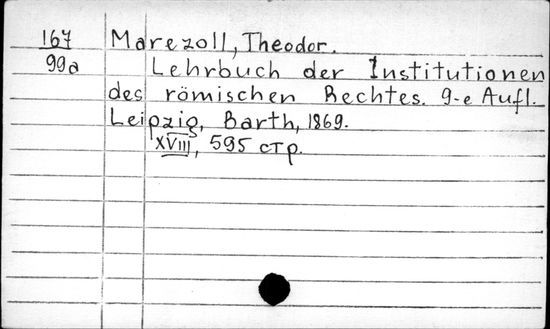 167 Marezoll, Theodor.
99a Lehrbuch der Institutionen
des römischen Rechtes. 9-e Aufl.
Leipzig, Barth, 1869.
XVIII, 595 стр.